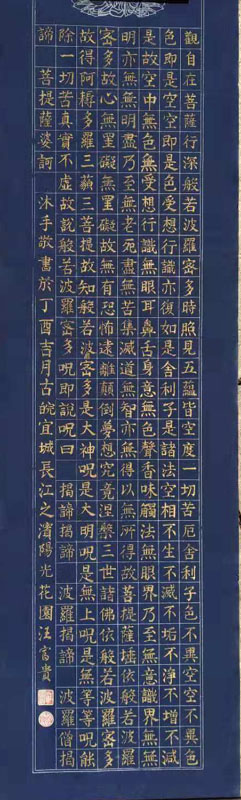 觀自在菩薩行深般若波羅密多時照見五蘊皆空度一切苦厄舍利子色不異空空不異色
色即是空空即是色受想行識亦復如是舍利子是諸法空相不生不滅不垢不淨不增不減
是故空中無色無受想行識無眼耳鼻舌身意無色聲香味觸法無眼界乃至無意識界無無
明亦無無明盡乃至無老死盡無苦集滅道無智亦無得以無所得故菩提薩埵依般若波羅
密多故心無罣礙無罣礙故無有恐怖遠離顛倒夢想究竟涅槃三世諸佛依般若波羅密多
故得阿耨多羅三藐三菩提故知般若波羅密多是大神呪是大明呪是無上呪是無等等呪能
除一切苦真實不虛故說般若波羅密多呪即說呪曰 揭諦揭諦 波羅揭諦 波羅僧揭
諦 菩提薩婆訶 沐手敬書於丁酉吉月古皖宜城長江之濱陽光花園汪富貴